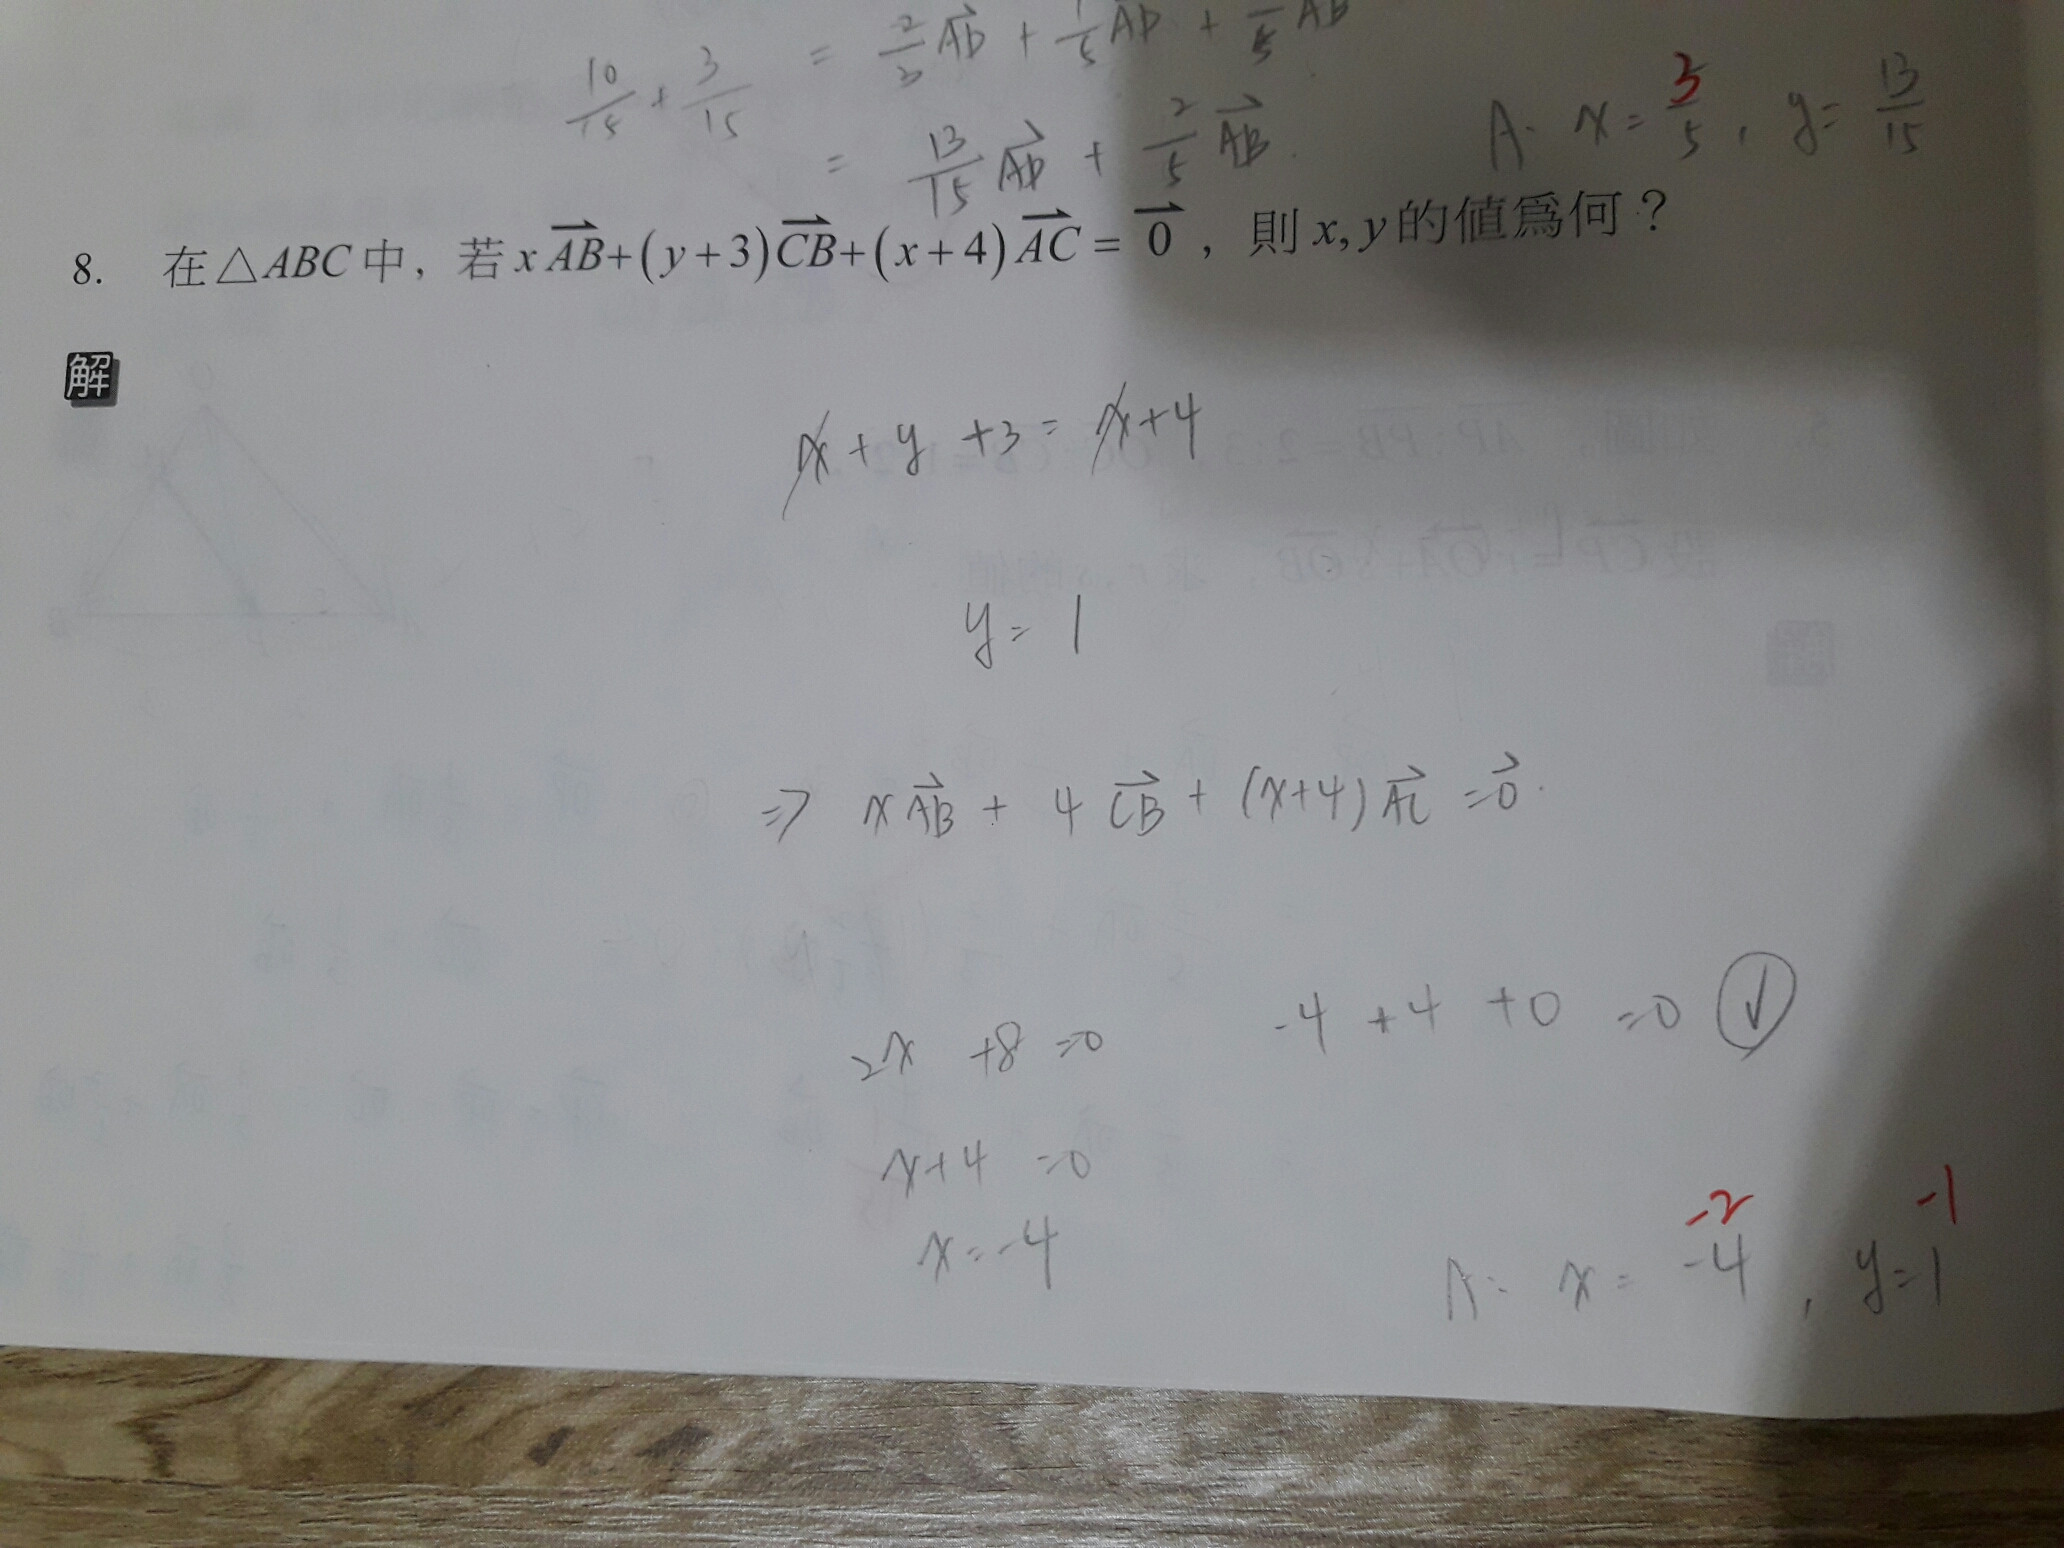 = 2/3 AD + 1/5 AD + 2/5 AB
10/15 + 3/15
= 13/15 AD + 2/5 AB
A: x = 3/5, y = 13/15
8. 在△ABC中，若xAB+(y+3)CB+(x+4)AC=0，則x,y的值爲何？
解
x+y+3=x+4
y=1
⇒ xAB + 4CB + (x+4)AC = 0
2x+8=0 -4+4+0=0 ✓
x+4=0
x=-4
-2 -1
A: x=-4, y=1